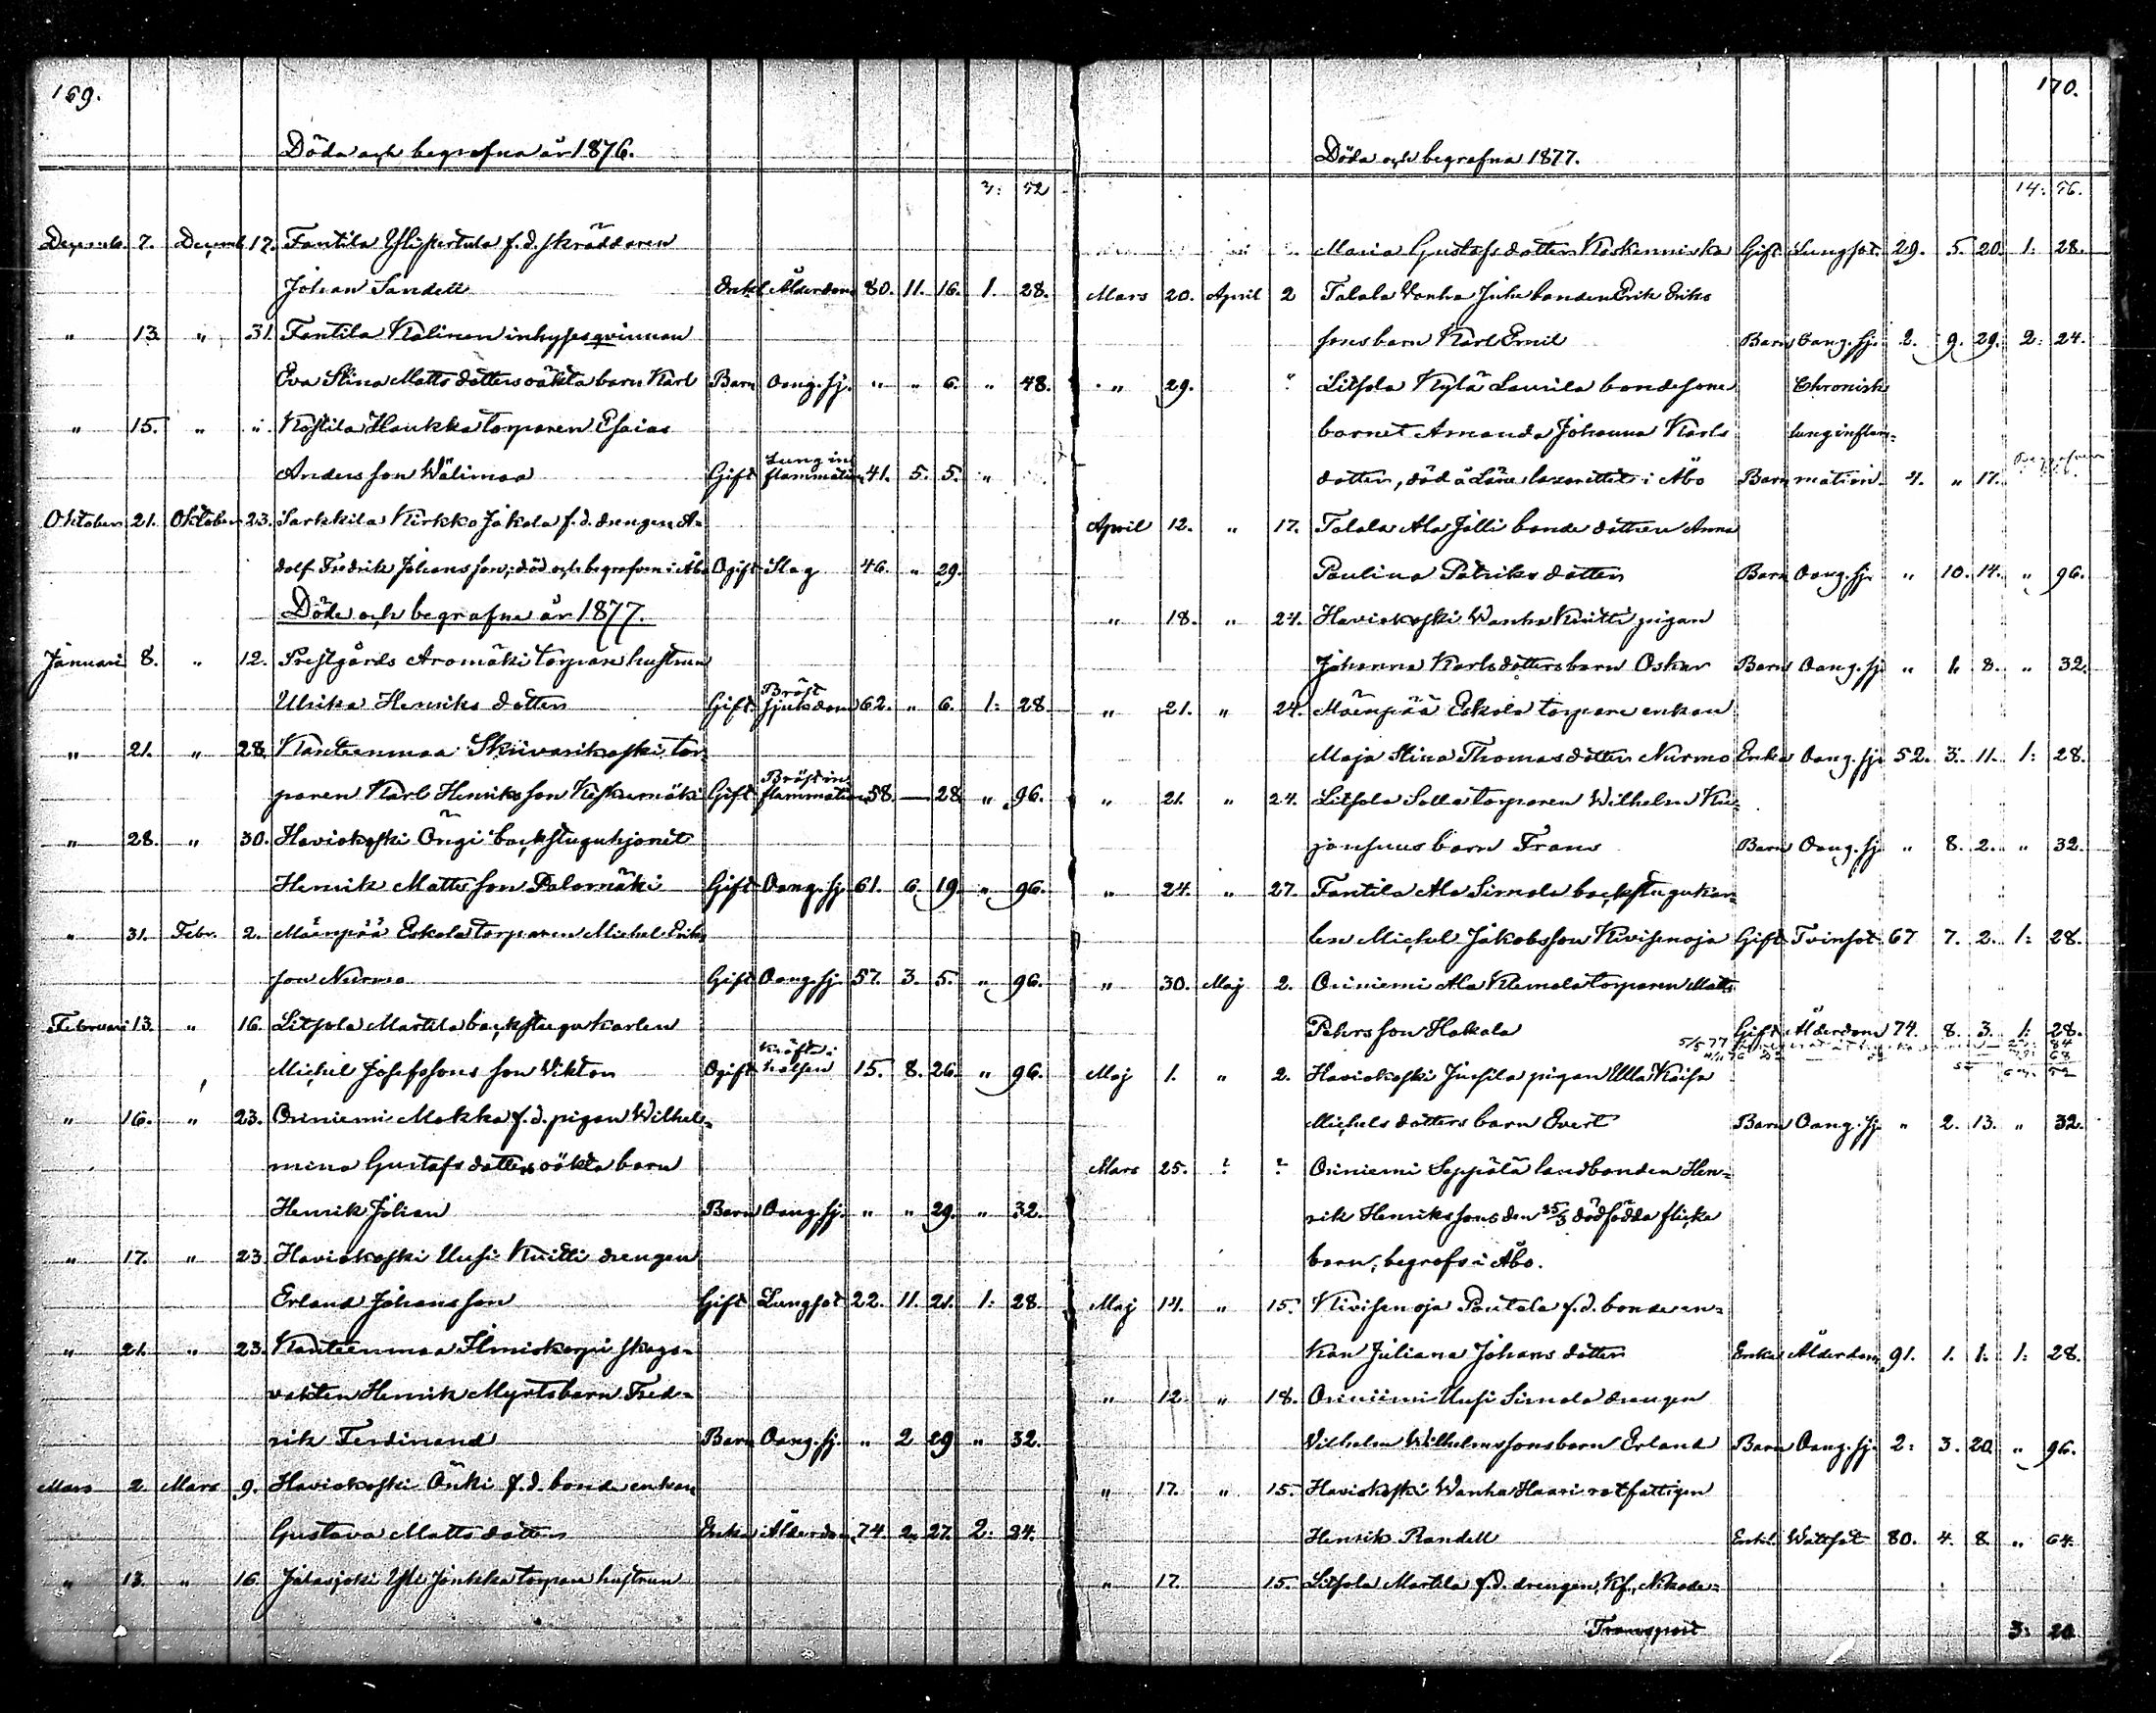 169.
Döda och begrafna år 1876.
3: 52
Decemb. 7. Decemb. 17. Fantila Ylispertula f.d. skräddaren
Johan Sandell Enkl. Ålderdom 80. 11. 16. 1. 28.
" 13. " 31. Fantila Kalinen inhyses qvinnan
Eva Stina Matts dotters oäkta barn Karl Barn Oang. sj. " " 6. " 48.
" 15. " " Köstila Haukka torparen Esaias
Andersson Wälimaa Gift Lungin flammation 41. 5. 5. "
Oktober 21. Oktober 23. Sarkkila Kirkko Jakola f.d. drengen A-
dolf Fredrik Johansson, död och begrafven i Åbo Ogift Slag 46. " 29.
Döda och begrafna år 1877.
Januari 8. " 12. Prestgårds Aromäki torpare hustrun
Ulrika Henriks dotter Gift Bröst sjukdom 62. " 6. 1: 28.
" 21. " 28. Kanteenmaa Skiivarikoski tor-
paren Karl Henriksson Keskimäki Gift Bröst in flammation 58. — 28 " 96.
" 28. " 30. Haviokoski Öngi backstuguhjonet
Henrik Mattsson Palomäki Gift Oang. sj. 61. 6. 19. " 96.
" 31. Febr. 2. Mäenpää Eskola torparen Michel Eriks
son Nurmo Gift Oang. sj. 57. 3. 5. " 96.
Februari 13. " 16. Litsola Martila backstugukarlen
Michel Josefssons son Viktor Ogift Kräfta i halsen 15. 8. 26. " 96.
" 16. " 23. Oriniemi Mokka f.d. pigan Wilhel-
mina Gustafs dotters oäkta barn
Henrik Johan Barn Oang. sj. " " 29. " 32.
" 17. " 23 Haviokoski Uusi Knitti drengen
Erland Johansson Gift Lungsot 22. 11. 21. 1: 28.
" 21. " 23. Kanteenmaa Ilmiskorpi skogs-
vakten Henrik Myrts barn Fred-
rik Ferdinand Barn Oang. sj. " 2 29 " 32.
Mars 2. Mars 9. Haviokoski Önki f.d. bonde enkan
Gustava Matts dotter Enka Ålderdom 74. 2. 27. 2: 24.
" 13. " 16 Jalasjoki Yli Jonkka torpare hustrun
170.
Döda och begrafna 1877.
14: 56.
Maria Gustafs dotter Koskenniska Gift Lungsot. 29. 5. 20. 1: 28.
Mars 20. April 2 Talala Wanha Juhe bonden Erik Eriks
sons barn Karl Emil Barn Oang. sj. 2. 9. 29. 2: 24.
" 29. " Litsola Kylä Laurila bondesone
barnet Amanda Johanna Karls
Chronisk lunginflam-
dotter, död å Läne lazarettet i Åbo Barn mation. 4. " 17.
April 12. " 17. Talala Ala Jälli bonde dottren Anna
Paulina Patriks dotter Barn Oang. sj. " 10. 14. " 96.
" 18. " 24. Haviokoski Wanha Knitti pigan
Johanna Karlsdotters barn Oskar Barn Oang. sj. " 1. 8. " 32.
" 21. " 24. Mäenpää Eskola torpare enkan
Maja Stina Thomasdotter Nurmo Enka Oang. sj. 52. 3. 11. 1: 28.
" 21. " 24. Litsola Solla torparen Wilhelm Ku-
jansuus barn Frans Barn Oang. sj. " 8. 2. " 32.
" 24. " 27. Fantila Ala Simola backstugukar-
len Michel Jakobsson Kivisenoja Gift Tvinsot 67 7. 2. 1: 28.
" 30. Maj 2. Oriniemi Ala Klemola torparen Matts
Petersson Hakala Gift Ålderdom 74. 8. 3. 1: 28.
Maj 1. " 2. Haviokoski Jussila pigan Ulla Kaisa
Michels dotters barn Evert Barn Oang. sj. " 2. 13. " 32.
Mars 25. ? ? Oriniemi Seppälä landbonden Hen-
rik Henrikssons den 25/3 dödfödda flicke
barn, begrofs i Åbo.
Maj 14. " 15. Kivisenoja Pantala f.d. bonde en-
kan Juliana Johans dotter Enka Ålderdom 91. 1. 1. 1: 28.
" 12. " 18. Oriniemi Uusi Simola drengen
Vilhelm Wilhelmssons barn Erland Barn Oang. sj. 2: 3. 20. " 96.
" 17. " 15. Haviokoski Wanha Haari rotfattigen
Henrik Randell Enkl. Wattsot 80. 4. 8. " 64.
" 17. 15. Litsola Martila f.d. drengen, Kf., Nikode-
Transport 3: 20